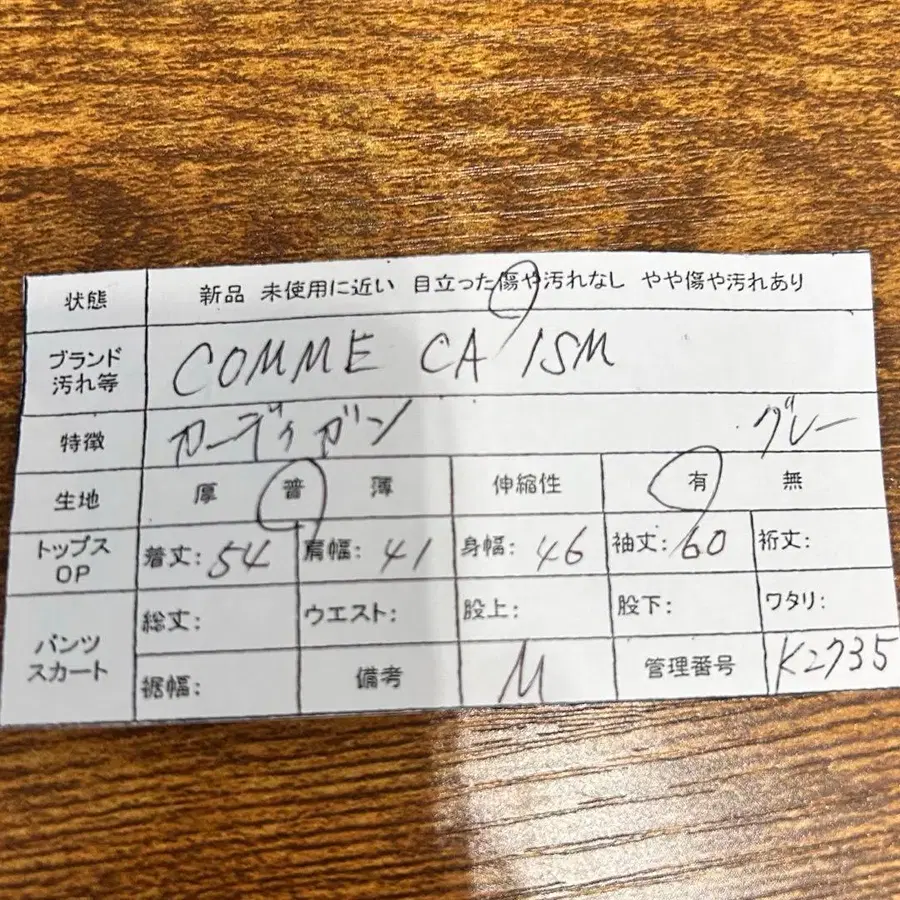 状態 新品 未使用に近い 目立った傷や汚れなし やや傷や汚れあり
ブランド
汚れ等 COMME CA ISM
特徴 カーディガン グレー
生地 厚 普 薄 伸縮性 有 無
トップス
OP 着丈: 54 肩幅: 41 身幅: 46 袖丈: 60 裄丈:
パンツ
スカート 総丈: ウエスト: 股上: 股下: ワタリ:
裾幅: 備考 M 管理番号 K2735